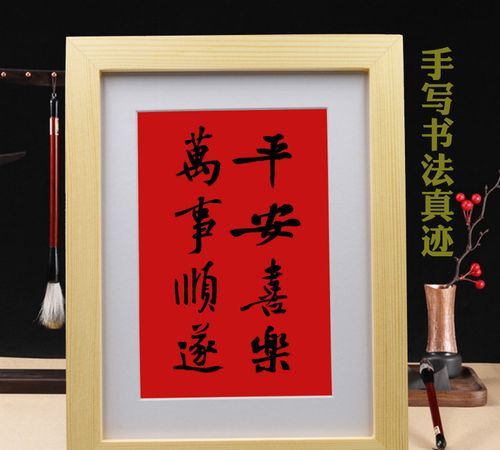 平安喜樂
萬事順遂
手写书法真迹